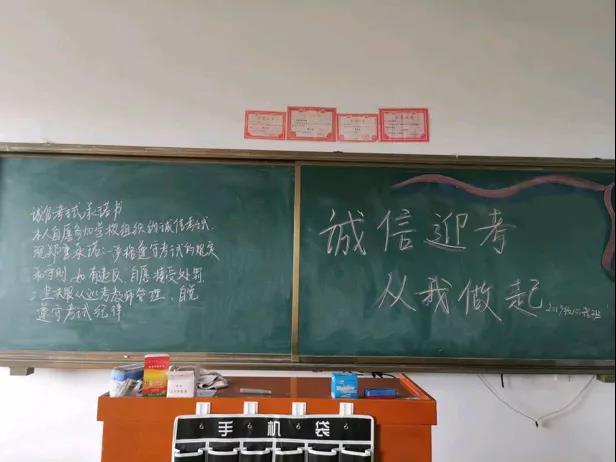 诚信考试承诺书
本人自愿参加学校组织的诚信考试.
现郑重承诺:一严格遵守考试的规定
和守则,如有违反,自愿接受处罚.
二坚决服从监考教师管理,自觉
遵守考试纪律
诚信迎考
从我做起
手机袋